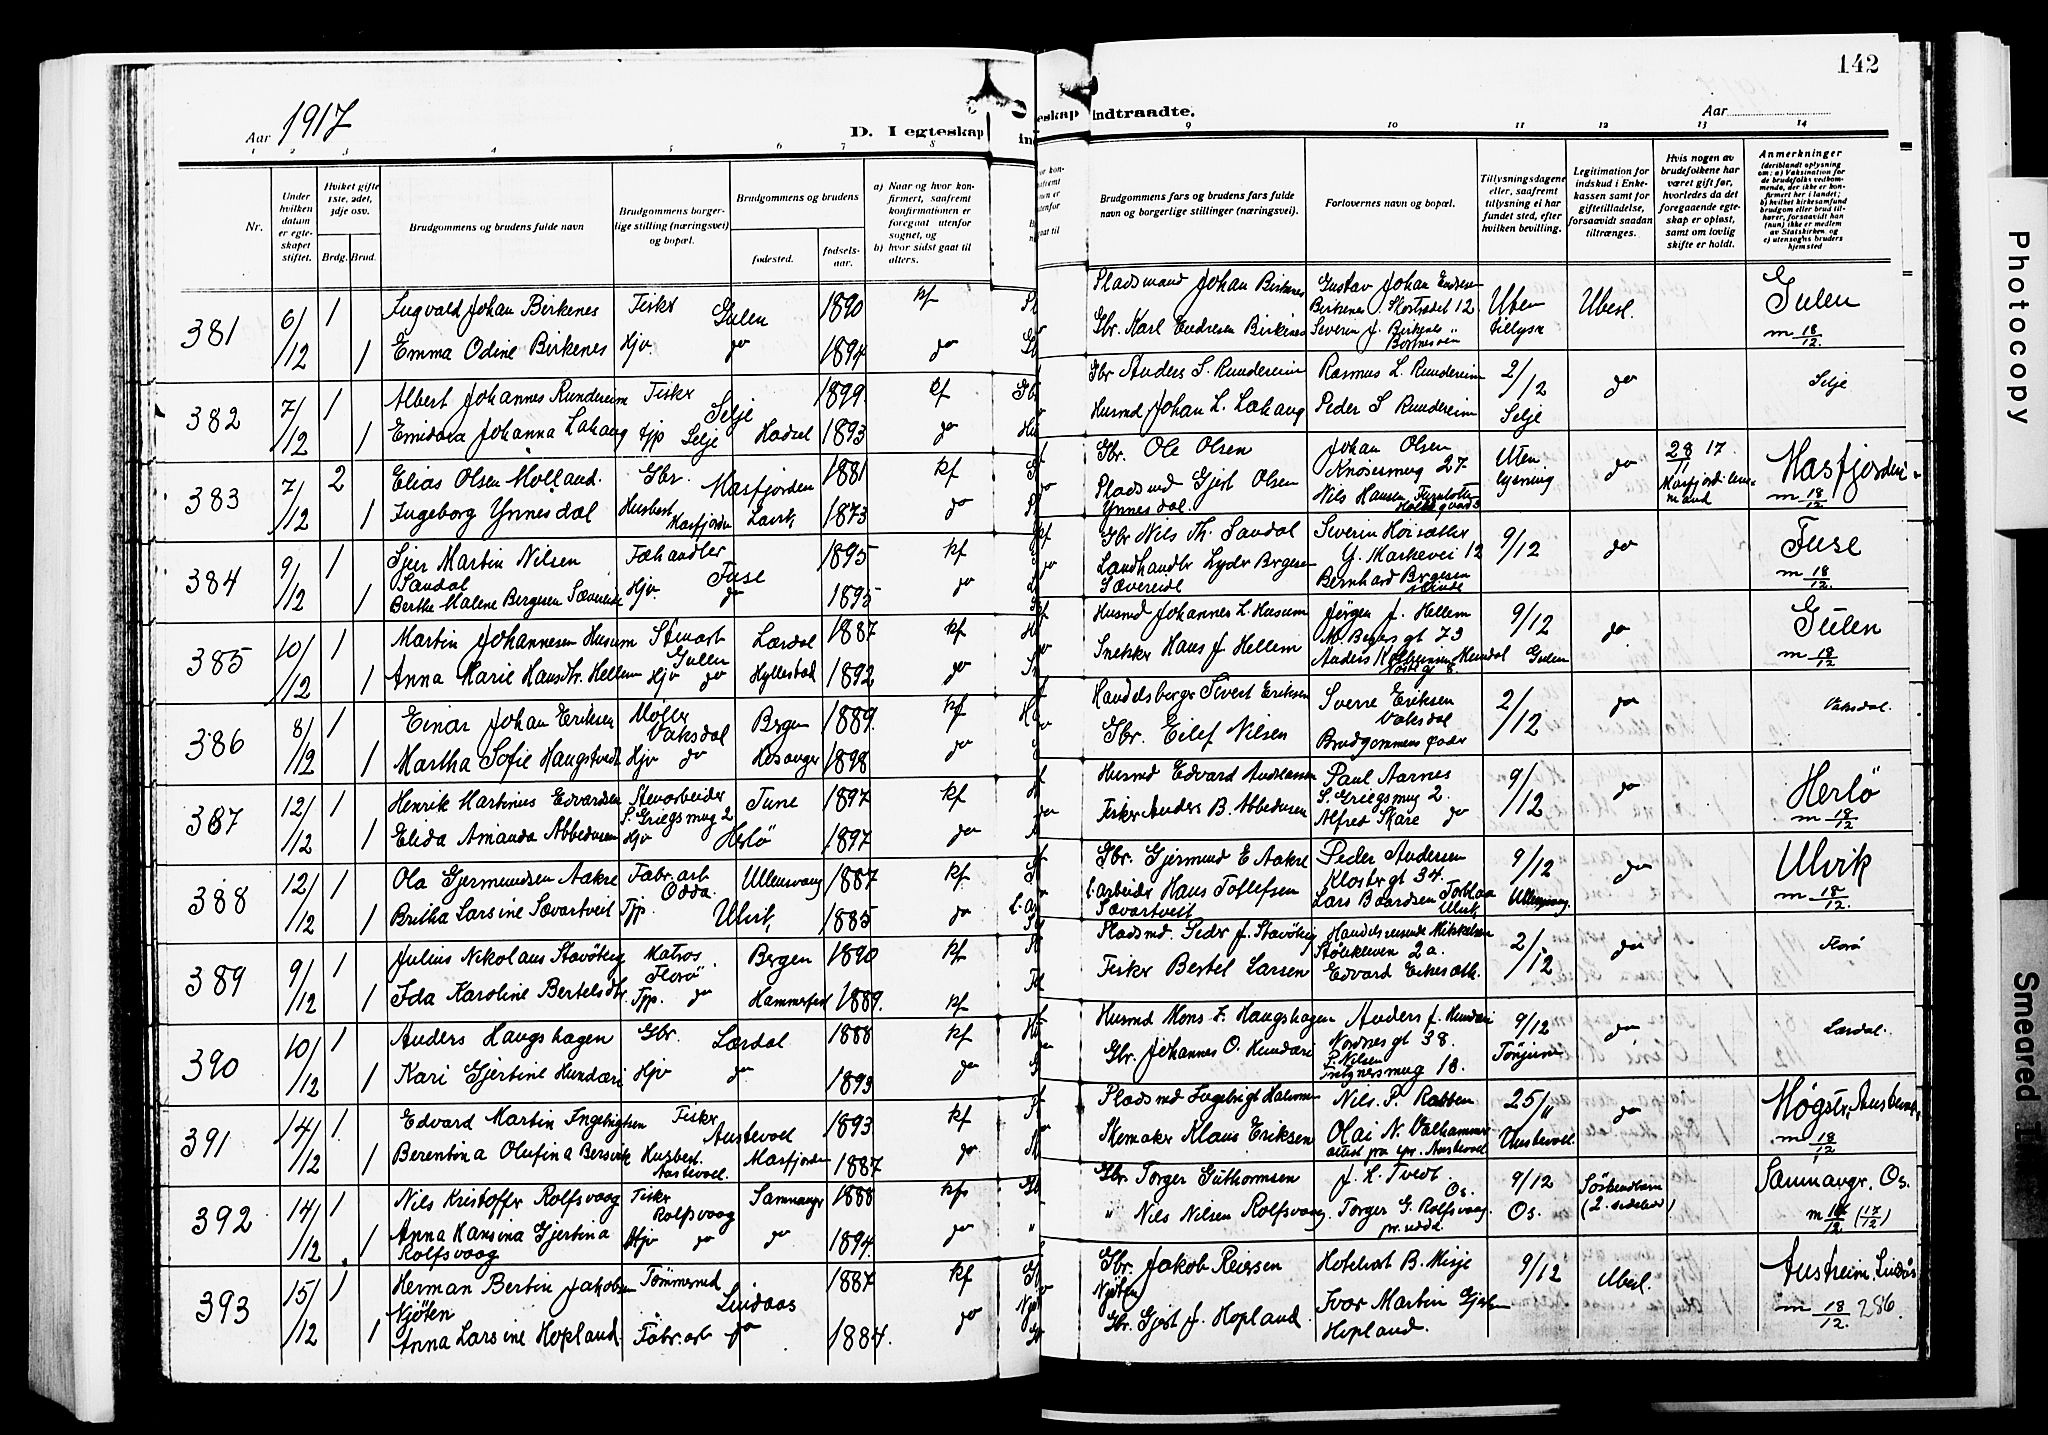 142
Aar 1917
D. I egteskap
indtraadte.
Aar
1 2 3 4 5 6 7 8 9 10 11 12 13 14
Nr.
Under hvilken datum er egteskapet stiftet.
Hviket gifte 1ste, 2det, 3dje osv.
Brdg. Brud.
Brudgommens og brudens fulde navn
Brudgommens borgerlige stilling (næringsvei) og bopæl.
Brudgommens og brudens
fødested.
fødselsaar.
a) Naar og hvor konfirmert, saafremt konfirmationen er foregaat utenfor sognet, og
b) hvor sidst gaat til alters.
Brudgommens fars og brudens fars fulde navn og borgerlige stillinger (næringsvei).
Forlovernes navn og bopæl.
Tillysningsdagene eller, saafremt tillysning ei har fundet sted, efter hvilken bevilling.
Legitimation for indskud i Enkekassen samt for giftetilladelse, forsaavidt saadan tiltrænges.
Hvis nogen av brudefolkene har været gift før, hvorledes da det foregaaende egteskap er opløst, samt om lovlig skifte er holdt.
Anmerkninger
381 6/12 1 Sugvald Johan Birkenes Fisker Gulen 1890 kf Pladsmand Johan Birkenes Gustav Johan Endresen Birkenes Skostrædet 12 Uten tillysn Ubesl. Gulen
1 Emma Odine Birkenes Hjv. do 1894 do Gbr. Karl Endresen Birkenes Severin J. Birkenes m 18/12.
382 7/12 1 Albert Johannes Rundereim Fisker Selje 1899 kf Gbr Anders S. Rundereim Rasmus L. Rundereim 2/12 do Selje
1 Emidora Johanna Lahaug tjp Selje Hadsel 1893 do Husmd Johan L. Lahaug Peder S Rundereim Selje
383 7/12 2 Elias Olsen Molland. Gbr. Masfjorden 1881 kf Gbr. Ole Olsen Johan Olsen Knøsesmug 27 Uten lysning do 28/11 17 Masfjord lensmand Masfjorden
1 Ingeborg Ynnesdal Husbest Masfjorden Lavik, 1873 do Pladsmd Gjert Olsen Ynnesdal. Nils Hansen m 18/12
384 9/12 1 Sjur Martin Nilsen Sandal Fæhandler Fuse 1895 kf Gbr Nils Th. Sandal Severin Høisæther G. Markevei 12 9/12 do Fuse
1 Berthe Malene Bergesen Sævereide Hjv. do 1895 do Landhandler Lyder Brgesen Sævereide Bernhard Brgesen m 18/12
385 10/12 1 Martin Johannesen Husum Stuart Gulen Lærdal 1887 kf Husmd Johannes L. Husum Jørgen J. Hellem 9/12 do Gulen
1 Anna Marie Hansdtr. Hellem Hjv do Hyllestad 1892 do Snekker Hans J Hellem Gulen m 18/12
386 8/12 1 Einar Johan Eriksen Møller Vaksdal Bergen 1889. kf Handelsbergr Sivert Eriksen Sverre Eriksen Vaksdal 2/12 do Vaksdal.
1 Martha Sofie Haugstvedt Hjv do Hosanger 1898 do Gbr. Eilef Nilsen Brudgommens fader
387 12/12 1 Henrik Martinius Edvardsen Stenarbeider S. Griegsmug 2 Tune 1897 kf Husmd Edvard Andreassen Paul Aarnes S. Griegsmug 2. 9/12 do Herlö
1 Elida Amanda Abbedusen Hjv Herlö 1897 do Fisker Anders B. Abbedusen Alfred Skare do m 18/12
388 12/12 1 Ola Gjermundsen Aakre Fabr.arb Odda. Ullensvang 1887 kf Gbr. Gjermund E Aakre Peder Andersen Klostergt 34. 9/12 do Ulvik
1 Britha Larsine Sævartveit Tjp. Ulvik, 1885 do l.arbeider Hans Tollefsen Sævartveit Lars Baardsen Torblaa Ulvik, Ullensvang. m 18/12.
389 9/12 1 Julius Nikolaus Stavöstrg Matros Florö Bergen 1890 kf Pladsmd. Peder J. Stavöstrg Handelsreisende Mikkelsen Stölekleven 2a. 2/12 do Florö
1 Ida Karoline Bertelsdtr. Tjp. do Hammerfest 1889. kf Fisker Bertel Larsen Edvard
390 10/12 1 Anders Haugshagen Gbr. Lærdal 1888 kf Husmd Mons J. Haugshagen Anders J. Hundæri Nordnesgt 38. 9/12 do Lærdal.
1 Kari Gjertine Hundæri Hjv do 1893 do Gbr. Johannes O. Hundæri P. Nilsen Tönjum
391 14/12 1. Edvard Martin Ingebrigtsen Fisker Austevoll 1893 kf Pladsmd Ingebrigt Halvorsen Nils. P. Rabben 25/11 do
1 Berentina Olufina Bersvik Husbest. Austevoll. Masfjorden 1887 do Skomaker Klaus Eriksen Olai N. Valhammer Austevoll. m 18/12
392 14/12 1 Nils Kristoffer Rolfsvaag Fisker Rolfsvaag Samnanger 1888 kf Gbr Torger Guthormsen J. H. Tvedt Os. 9/12 Samnangr. Os.
1 Anna Hansina Gjertina Rolfsvaag Hjv do do 1894. do " Nils Nilsen Rolfsvaag. Torger G. Rolfsvaag Os. (2. sidebud) m 18/12 (17/12)
393 15/12 1 Herman Bertin Jakobsen Njöten Tömmermd Lindaas 1887 kf Gbr. Jakob Reiersen Njöten Hotelvert B. Misje 9/12 Ubesl. Austreim, Lindås
1 Anna Larsine Hopland. Fabr.arb do 1884. do Gbr. Gjert J. Hopland Ivar Martin Gjertsen Hopland. m 18/12 286.
Photocopy
Smeared